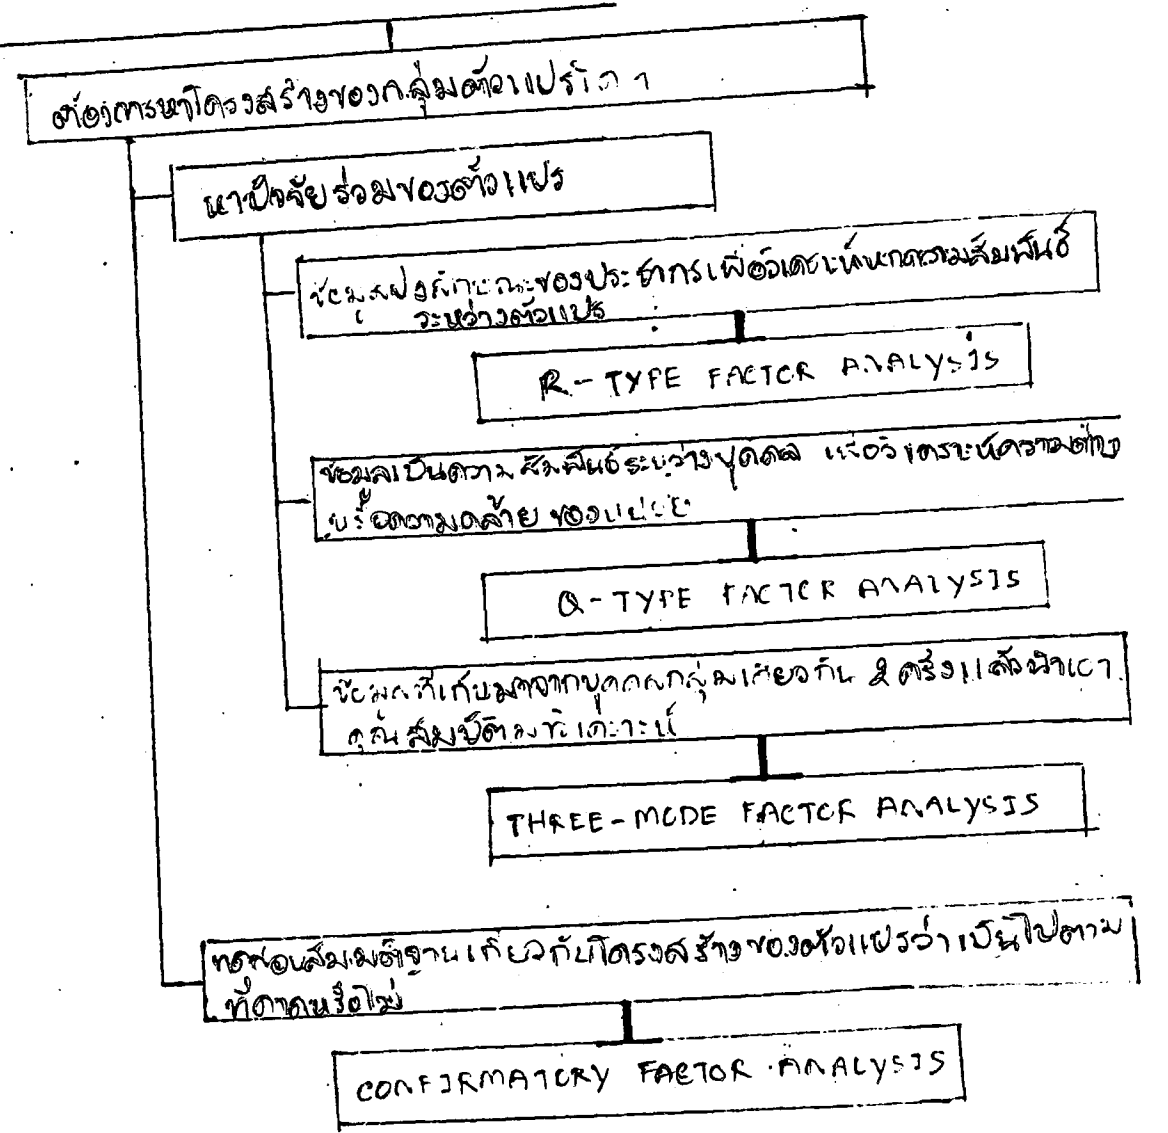 ต้องการหาโครงสร้างของกลุ่มตัวแปร
หาปัจจัยร่วมของตัวแปร
ข้อมูลเป็นลักษณะของประชากรเพื่อวิเคราะห์หาความสัมพันธ์
ระหว่างตัวแปร
R-TYPE FACTOR ANALYSIS
ข้อมูลเป็นความสัมพันธ์ระหว่างบุคคล เพื่อวิเคราะห์ความต่าง
หรือความคล้ายของ
Q-TYPE FACTOR ANALYSIS
ข้อมูลที่เก็บมาจากบุคคลกลุ่มเดียวกัน 2 ครั้งแล้วนำเอา
คุณสมบัติมาวิเคราะห์
THREE-MODE FACTOR ANALYSIS
ทดสอบสมมติฐานเกี่ยวกับโครงสร้างของตัวแปรว่าเป็นไปตาม
ที่คาดหรือไม่
CONFIRMATORY FACTOR ANALYSIS